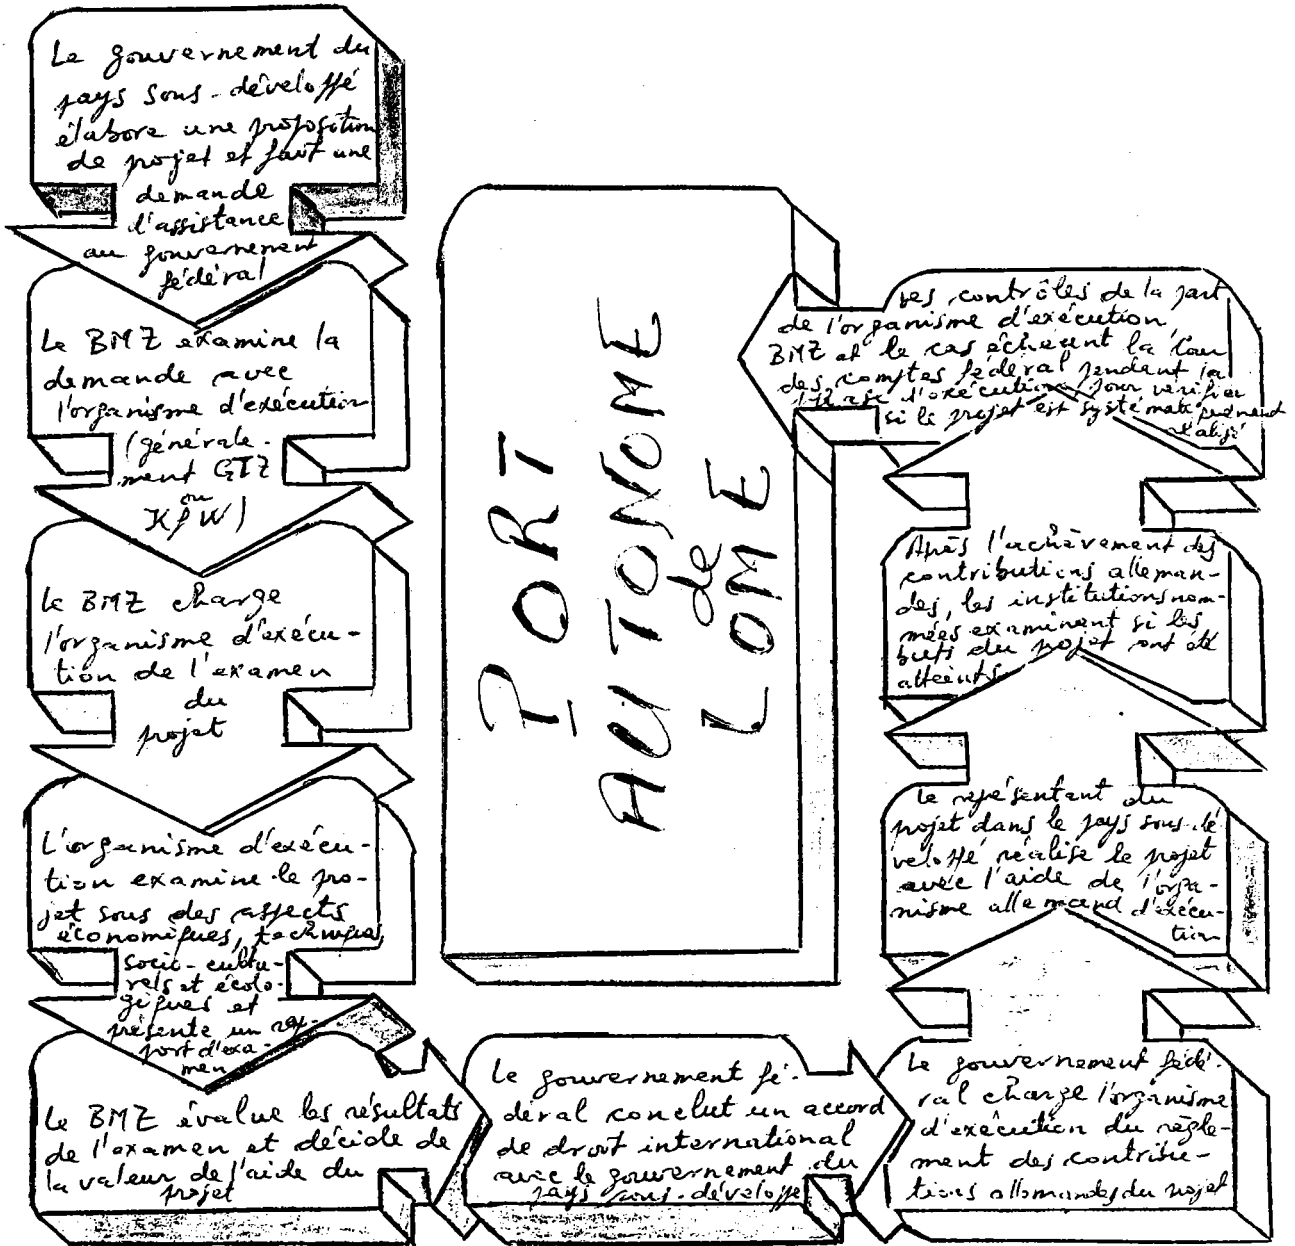 Le gouvernement du
pays sous-développé
élabore une proposition
de projet et fait une
demande
d'assistance
au gouvernement
fédéral
Le BMZ examine la
demande avec
l'organisme d'exécution
(générale-
ment GTZ
ou
KfW)
Le BMZ charge
l'organisme d'exécu-
tion de l'examen
du
projet
L'organisme d'exécu-
tion examine le pro-
jet sous des aspects
économiques, techniques
socio-cultu-
rels et écolo-
giques et
présente un rap-
port d'exa-
men
Le BMZ évalue les résultats
de l'examen et décide de
la valeur de l'aide du
projet
Le gouvernement fé-
déral conclut un accord
de droit international
avec le gouvernement du
pays sous-développé
Le gouvernement fédé-
ral charge l'organisme
d'exécution du règle-
ment des contribu-
tions allemandes du projet
Le représentant du
projet dans le pays sous-dé
veloppé réalise le projet
avec l'aide de l'orga-
nisme allemand d'exécu-
tion
Après l'achèvement des
contributions alleman-
des, les institutions nom-
mées examinent si les
buts du projet ont été
atteints
des contrôles de la part
de l'organisme d'exécution
BMZ et le cas échéant la Cour
des comptes fédéral pendant la
phase d'exécution pour vérifier
si le projet est systématiquement
réalisé
PORT
AUTONOME
de
LOME